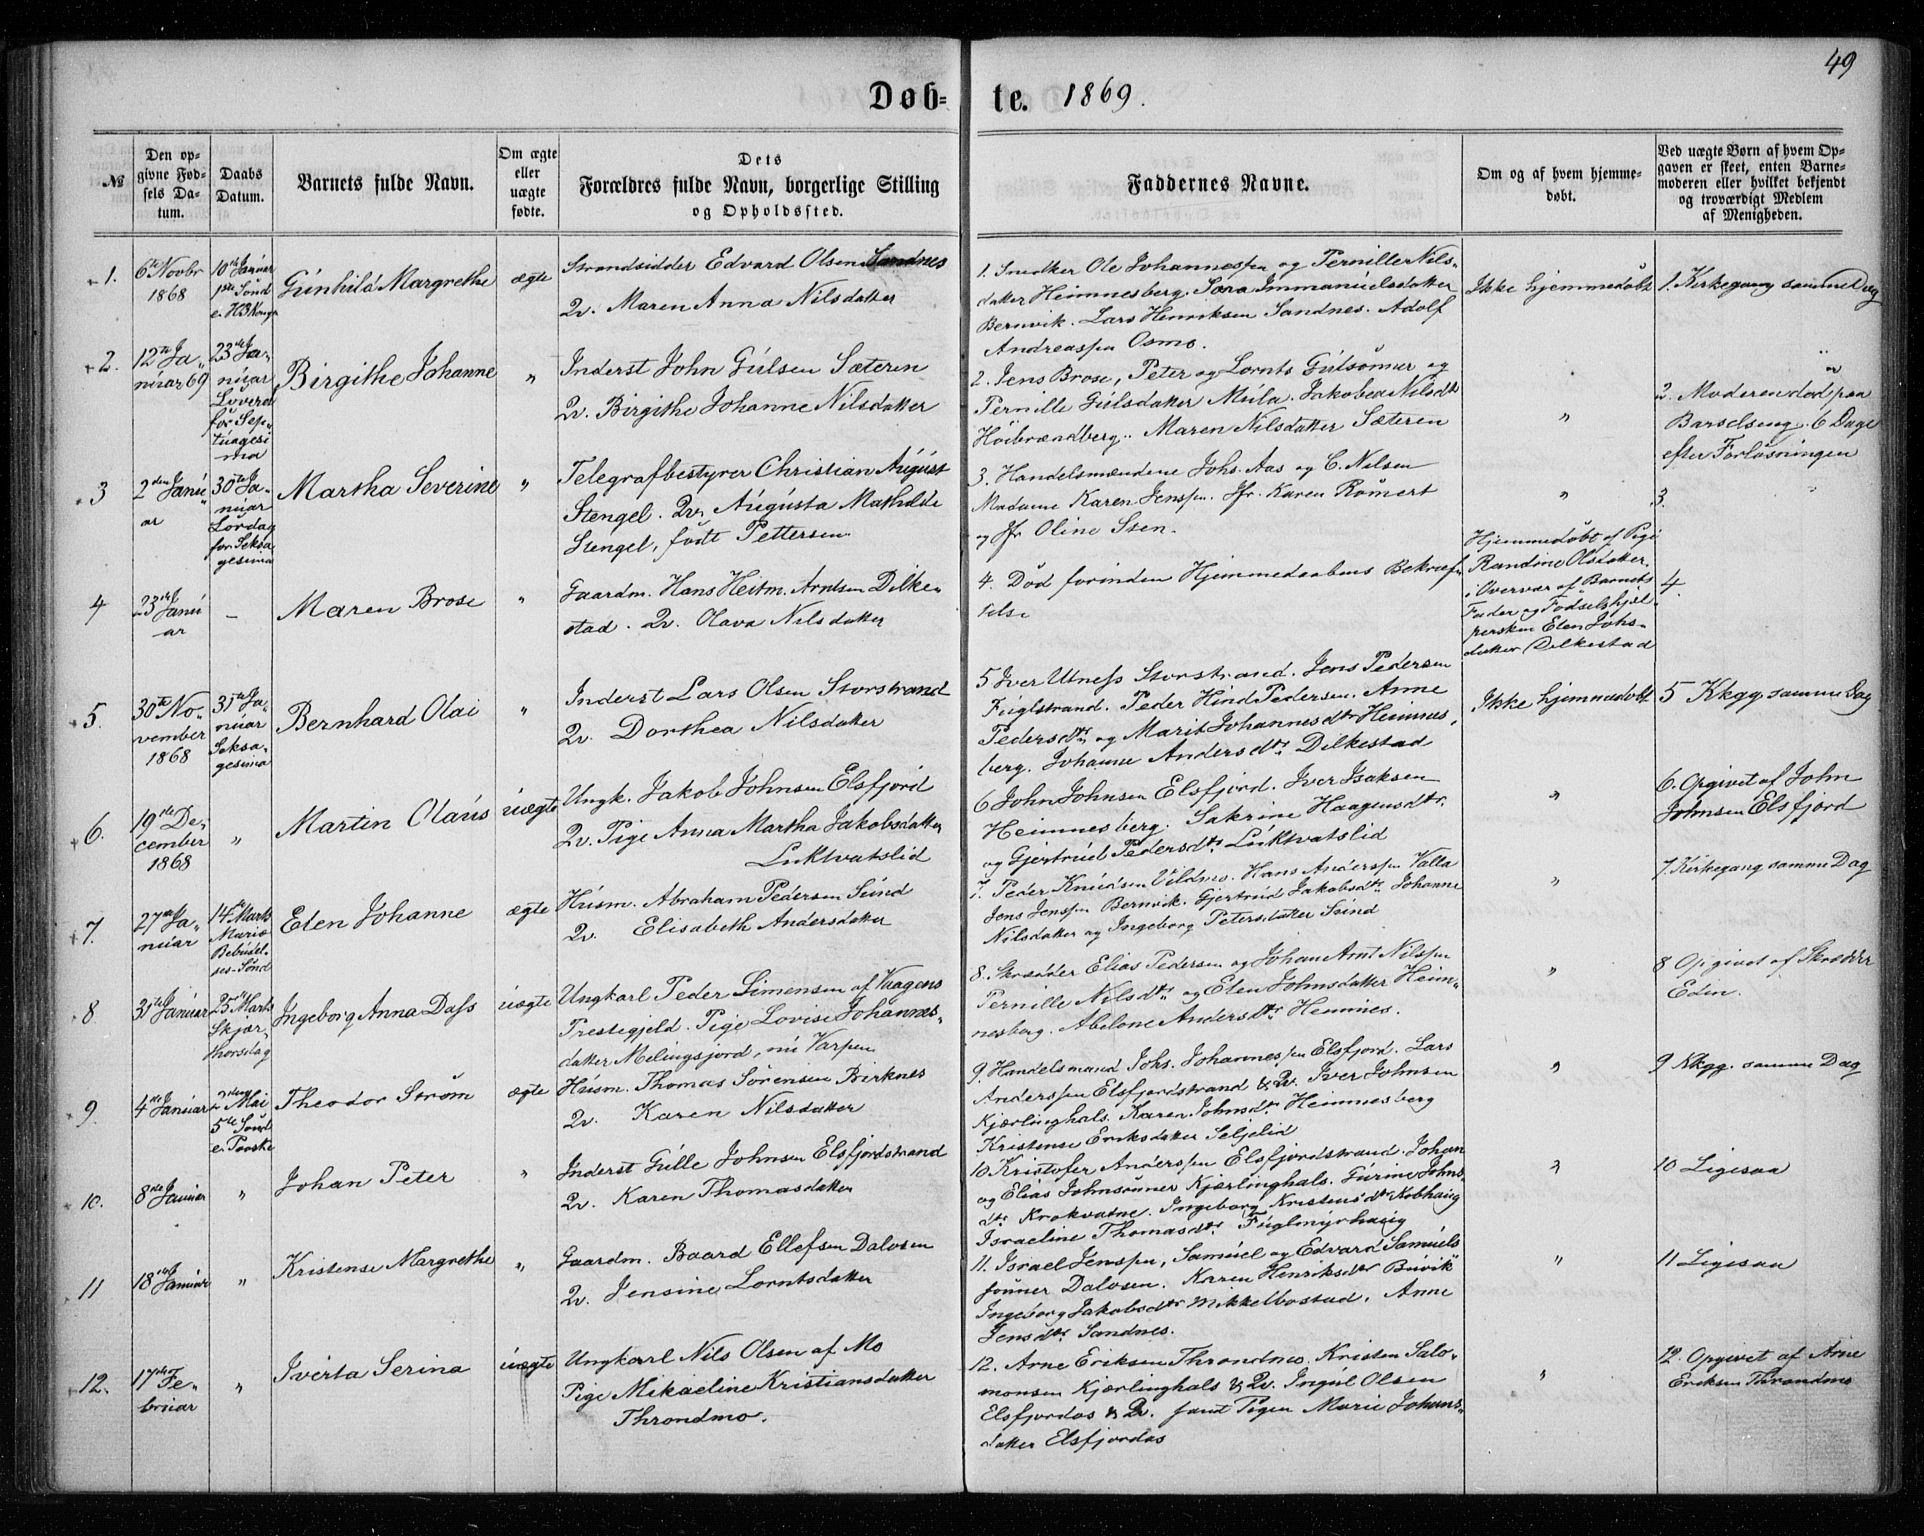 49
Døb- te. 1869.
№
Den op-
givne Fød-
sels Da-
tum.
Daabs
Datum.
Barnets fulde Navn.
Om ægte
eller
uægte
fødte.
Dets
Forældres fulde Navn, borgerlige Stilling
og Opholdssted.
Faddernes Navne.
Om og af hvem hjemme-
døbt.
Ved uægte Børn af hvem Op-
gaven er skeet, enten Barne-
moderen eller hvilket bekjendt
og troværdigt Medlem
af Menigheden.
1.
6te Novbr
1868
10de Januar
1ste Sønd
e. H3Konge
Gunhild Margrethe
ægte
Strandsidder Edvard Olsen Sandnes
Qv. Maren Anna Nilsdatter
1. Snedker Ole Johannessen og Pernille Nils-
datter Heimnesberg. Sara Immanuelsdatter
Bernvik. Lars Henriksen Sandnes. Adolf
Andreassen Osmo.
Ikke hjemmedøbt
1. Kirkegang samme Dag
2.
12te Ja-
nuar 69
23de Ja-
nuar
Løverd
før Sep-
tuagesi
ma
Birgithe Johanne
"
Inderst John Gulsen Sæteren
Qv. Birgithe Johanne Nilsdatter
2. Jens Brose, Peter og Lornts Gulsønner og
Pernille Gulsdatter Mula. Jakobea Nilsdtr
Höibrændberg. Maren Nilsdatter Sæteren
"
2. Moderen død paa
Barselseng 6 Dage
efter Forløsningen
3
2den Janu
ar
30te Ja-
nuar
Lørdag
før Seksa
gesima
Martha Severine
"
Telegrafbestyrer Christian August
Stengel. Qv. Augusta Mathilde
Stengel, født Pettersen
3. Handelsmændene Johs. Aas og C. Nilsen
Madame Karen Jenssen. Jfr. Karen Römert
og Jfr Oline Steen.
"
3.
4
23de Janu
ar
–
Maren Brose
"
Gaardm. Hans Heitm. Arntsen Dilke
stad. Qv. Olava Nilsdatter
4. Død forinden Hjemmedaabens Bekræf
telse
Hjemmedøbt af Pige
Randine Olsdatter
i Overvær af Barnets
Fader og Fødselshjæl-
persken Elen Johs-
datter Dilkestad
4.
5.
30te No-
vember
1868
31te Ja-
nuar
Seksa-
gesima
Bernhard Olai
"
Inderst Lars Olsen Storstrand
Qv. Dorthea Nilsdatter
5 Iver Utness Storstrand. Jens Pedersen
Fuglstrand. Peder Hind Pedersen. Anne
Pedersdtr. og Marit Johannesdtr Heimnes-
berg. Johanne Andersdtr. Dilkestad
Ikke hjemmedøbt
5 Kkgg samme Dag
6.
19de De-
cember
1868
"
Martin Olaus
uægte
Ungk. Jakob Johnsen Elsfjord
Qv. Pige Anna Martha Jakobsdatter
Luktvatslid
6 John Johnsen Elsfjord. Iver Isaksen
Heimnesberg. Sakrine Haagensdtr.
og Gjertrud Pedersdtr. Luktvatslid
"
6. Opgivet af John
Johnsen Elsfjord
7.
27de Ja-
nuar
14de Marts
Mariæ
Bebudel-
ses-Sønd
Elen Johanne
ægte
Husm. Abraham Pedersen Sund
Qv. Elisabeth Andersdatter
7. Peder Knudsen Vildmo. Hans Anderssen Valla
Jens Jenssen Bernvik. Gjertrud Jakobsdtr. Johanne
Nilsdatter og Ingeborg Petersdatter Sund
"
7 Kirkegang samme Dag
8
3die Januar
25de Marts
Skjær-
thorsdag
Ingeborg Anna Dass
uægte
Ungkarl Peder Simensen af Vaagens
Prestegjeld. Pige Lovise Johannes-
datter Melingsjord, nu Varpen
8. Skrædder Elias Pedersen og Johan Arnt Nilssen
Pernille Nilsdtr og Elen Johnsdatter Heim-
nesberg. Abelone Andersdtr Hemnes.
"
8 Opgivet af Skrædder
Edin.
9.
4de Januar
2den Mai
5te Sønd
e. Paaske
Theodor Strøm
ægte
Husm. Thomas Sørensen Birknes
Qv. Karen Nilsdatter
9. Handelsmand Johs. Johannessen Elsfjord. Lars
Anderssen Elsfjordstrand & Qv. Iver Johnsen
Kjærlinghals. Karen Johnsdtr. Heimnesberg
Kristense Eriksdatter Seljelid
"
9 Kkgg. samme Dag
10.
8de Januar
"
Johan Peter
"
Inderst Gulle Johnsen Elsfjordstrand
Qv. Karen Thomasdatter
10. Kristofer Anderssen Elsfjordstrand. Johan
og Elias Johnsønner Kjærlinghals. Turine Johns-
dtr. Krokvatne. Ingeborg Kristensdtr Kobhaug
Israeline Thomasdtr. Fuglmyrhaug
"
10 Ligesaa
11
18de Januar
"
Kristense Margrethe
"
Gaardm. Baard Ellefsen Dalosen
Qv. Jensine Lorntsdatter
11. Israel Jenssen, Samuel og Edvard Samuels
sønner Dalosen. Karen Henriksdtr Buvik
Ingeborg Jakobsdtr Mikkelbostad. Anne
Jensdtr. Sandnes.
"
11 Ligesaa
12.
17de Fe-
bruar
"
Iverta Serina
uægte
Ungkarl Nils Olsen af Mo
Pige Mikaeline Kristiansdatter
Throndmo.
12. Arne Eriksen Throndmo. Kristen Salo-
monsen Kjærlinghals & Qv. Ingul Olsen
Elsfjordos & Qv. samt Pigen Marie Johans-
datter Elsfjordos
"
12. Opgivet af Arne
Eriksen Throndmo